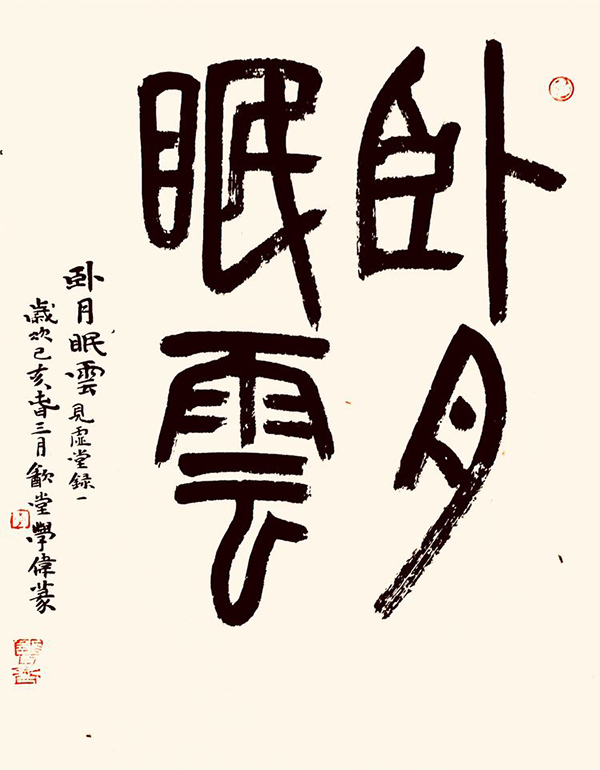 卧月
眠雲
卧月眠雲見虛堂録一
歲次己亥春三月龡堂學偉篆